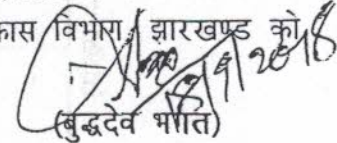 कास विभाग, झारखण्ड को
18/9/2018
(बुद्धदेव भगत)